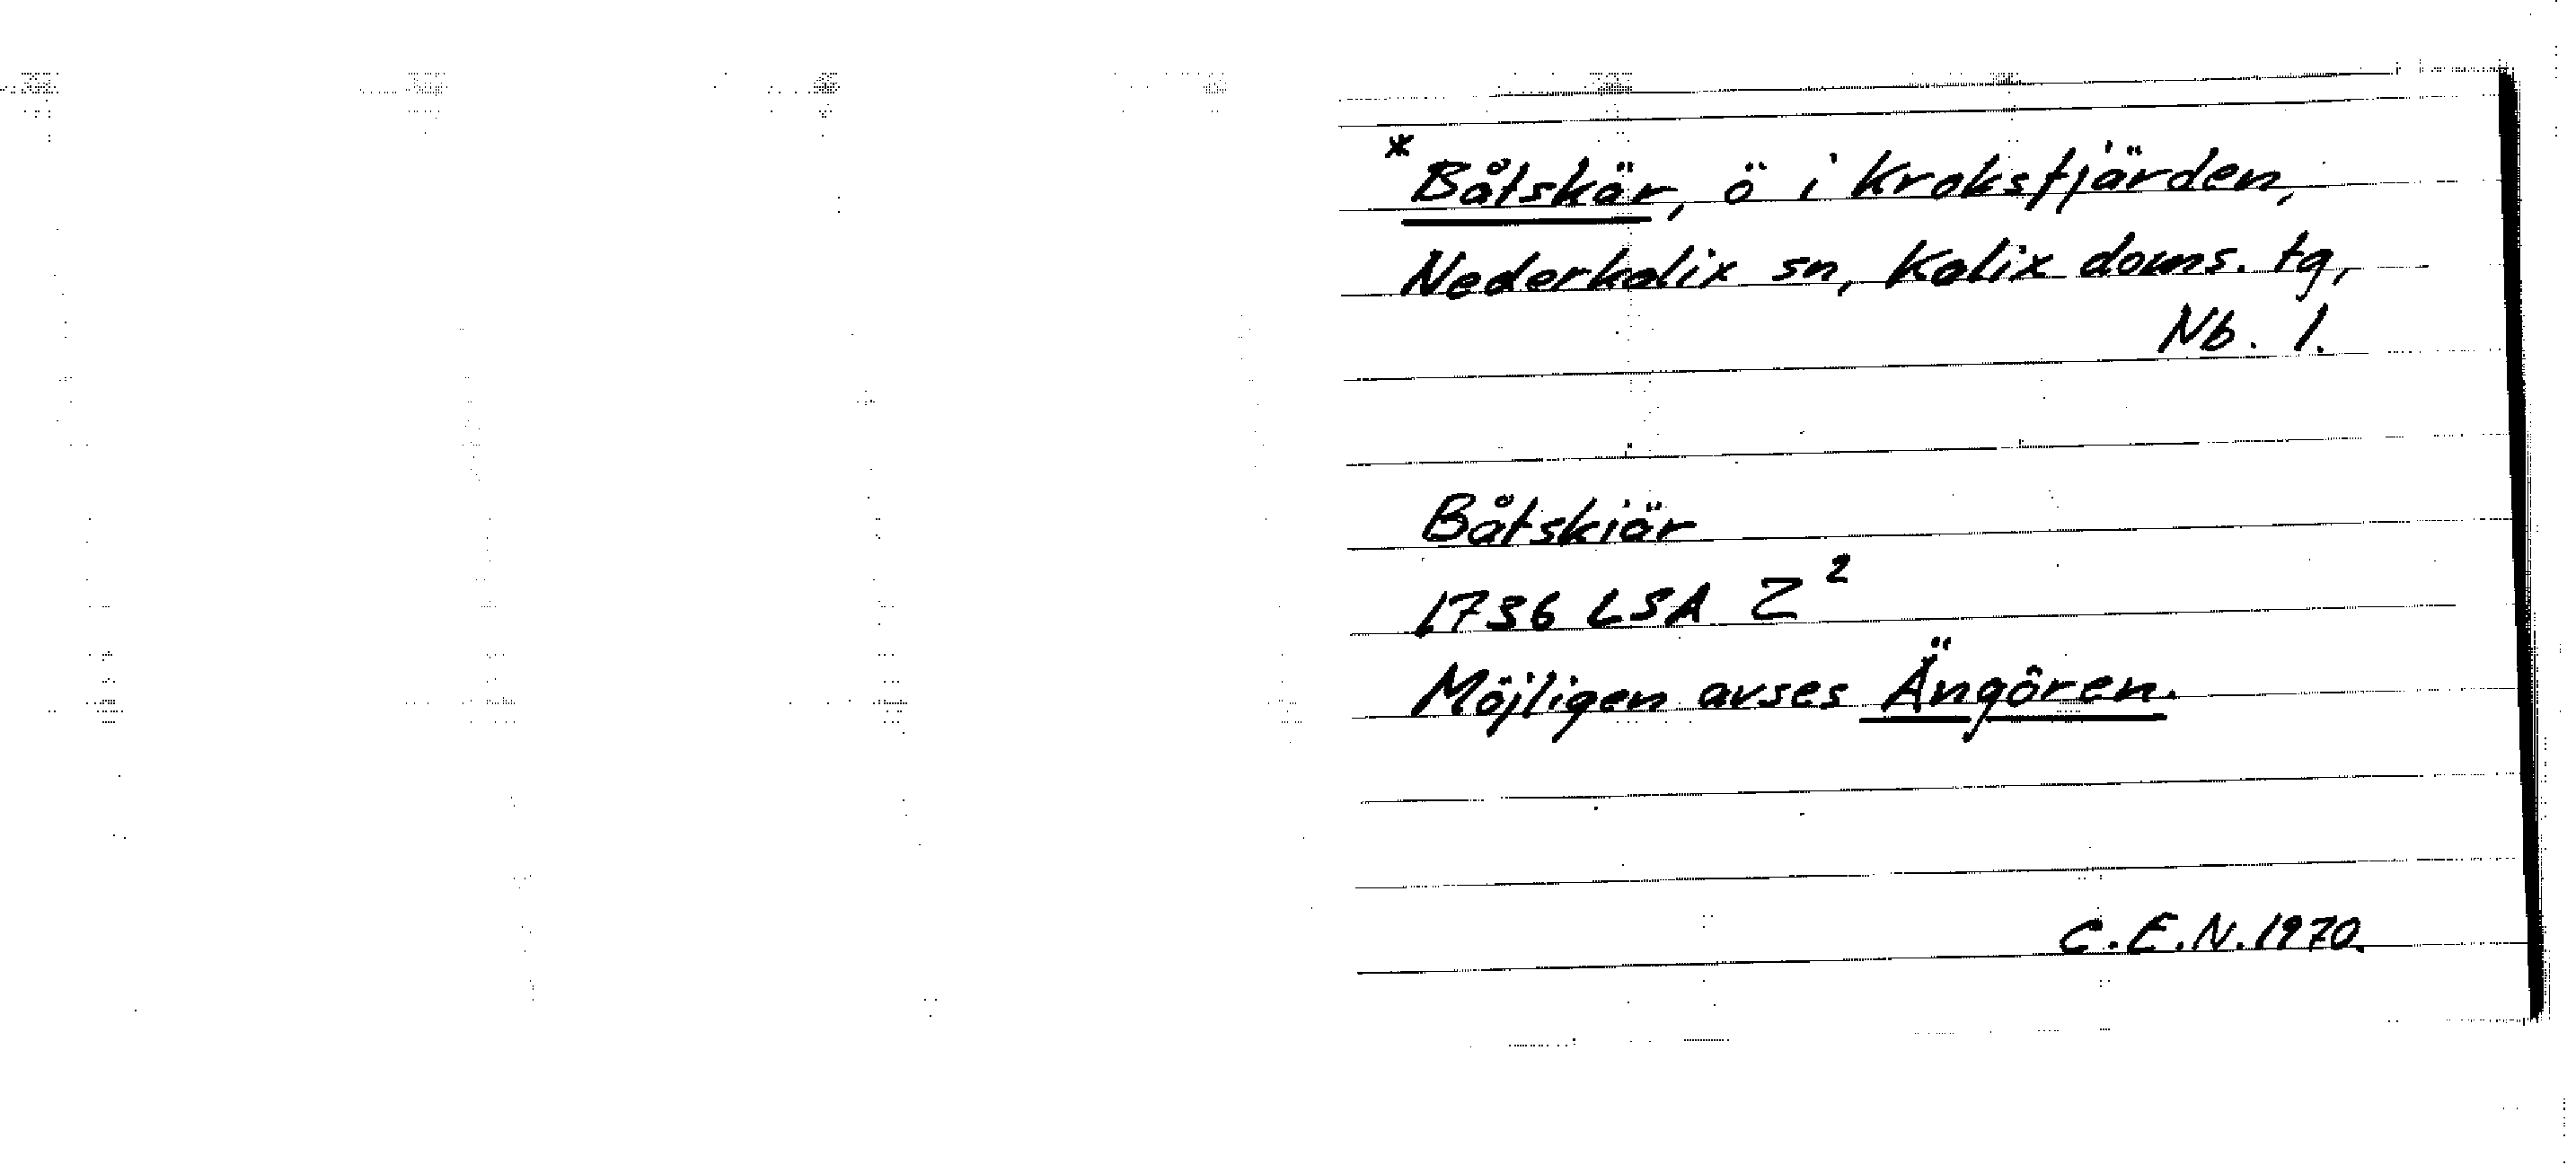 *Båtskär, ö i Kroksfjärden,
Nederkalix sn, Kalix doms. tg,
Nb. l.
Båtskiär
1736 LSA Z²
Möjligen avses Ängören.
C.E.N. 1970.